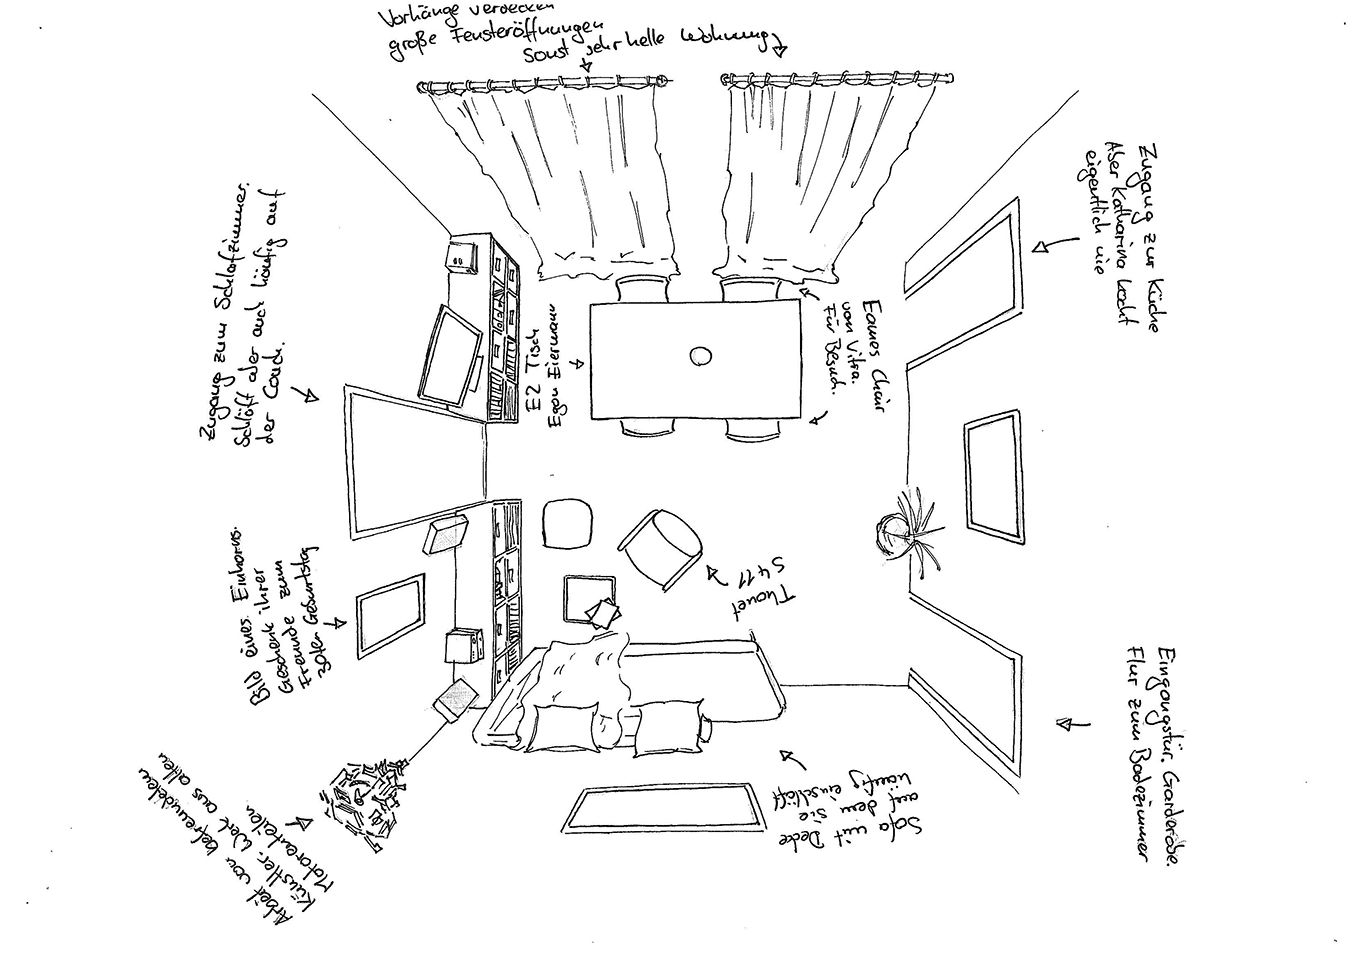 Vorhänge verdecken
große Fensteröffnungen
sonst sehr helle Wohnung
Zugang zur Küche
Aber Katharina kocht
eigentlich nie
Zugang zum Schlafzimmer.
Schläft aber auch häufig auf
der Couch.
E2 Tisch
Egon Eiermann
Eames Chair
von Vitra.
Für Besuch.
Thonet
S 411
Bild eines Einhorns.
Geschenk ihrer
Freunde zum
30ten Geburtstag
Eingangstür. Garderobe.
Flur zum Badezimmer
Sofa mit Decke
auf dem sie
häufig einschläft
Arbeit von befreundeten
Künstler. Werk aus alten
Motorenteilen